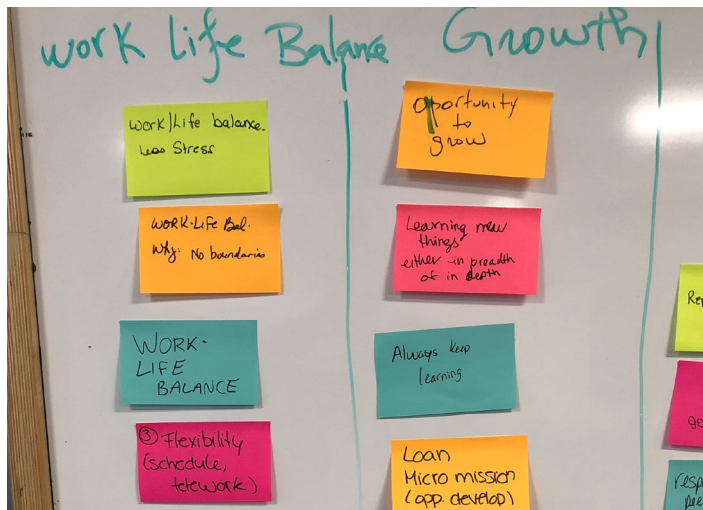 Work Life Balance
Growth
Work/Life balance.
Less Stress
Work-Life Bal.
Why: No boundaries
WORK-
LIFE
BALANCE
③ Flexibility
(schedule,
telework)
Opportunity
to
grow
Learning new
things
either in breadth
of in depth
Always keep
learning
Loan
Micro mission
(opp. develop)
Re
ge
resp
pee